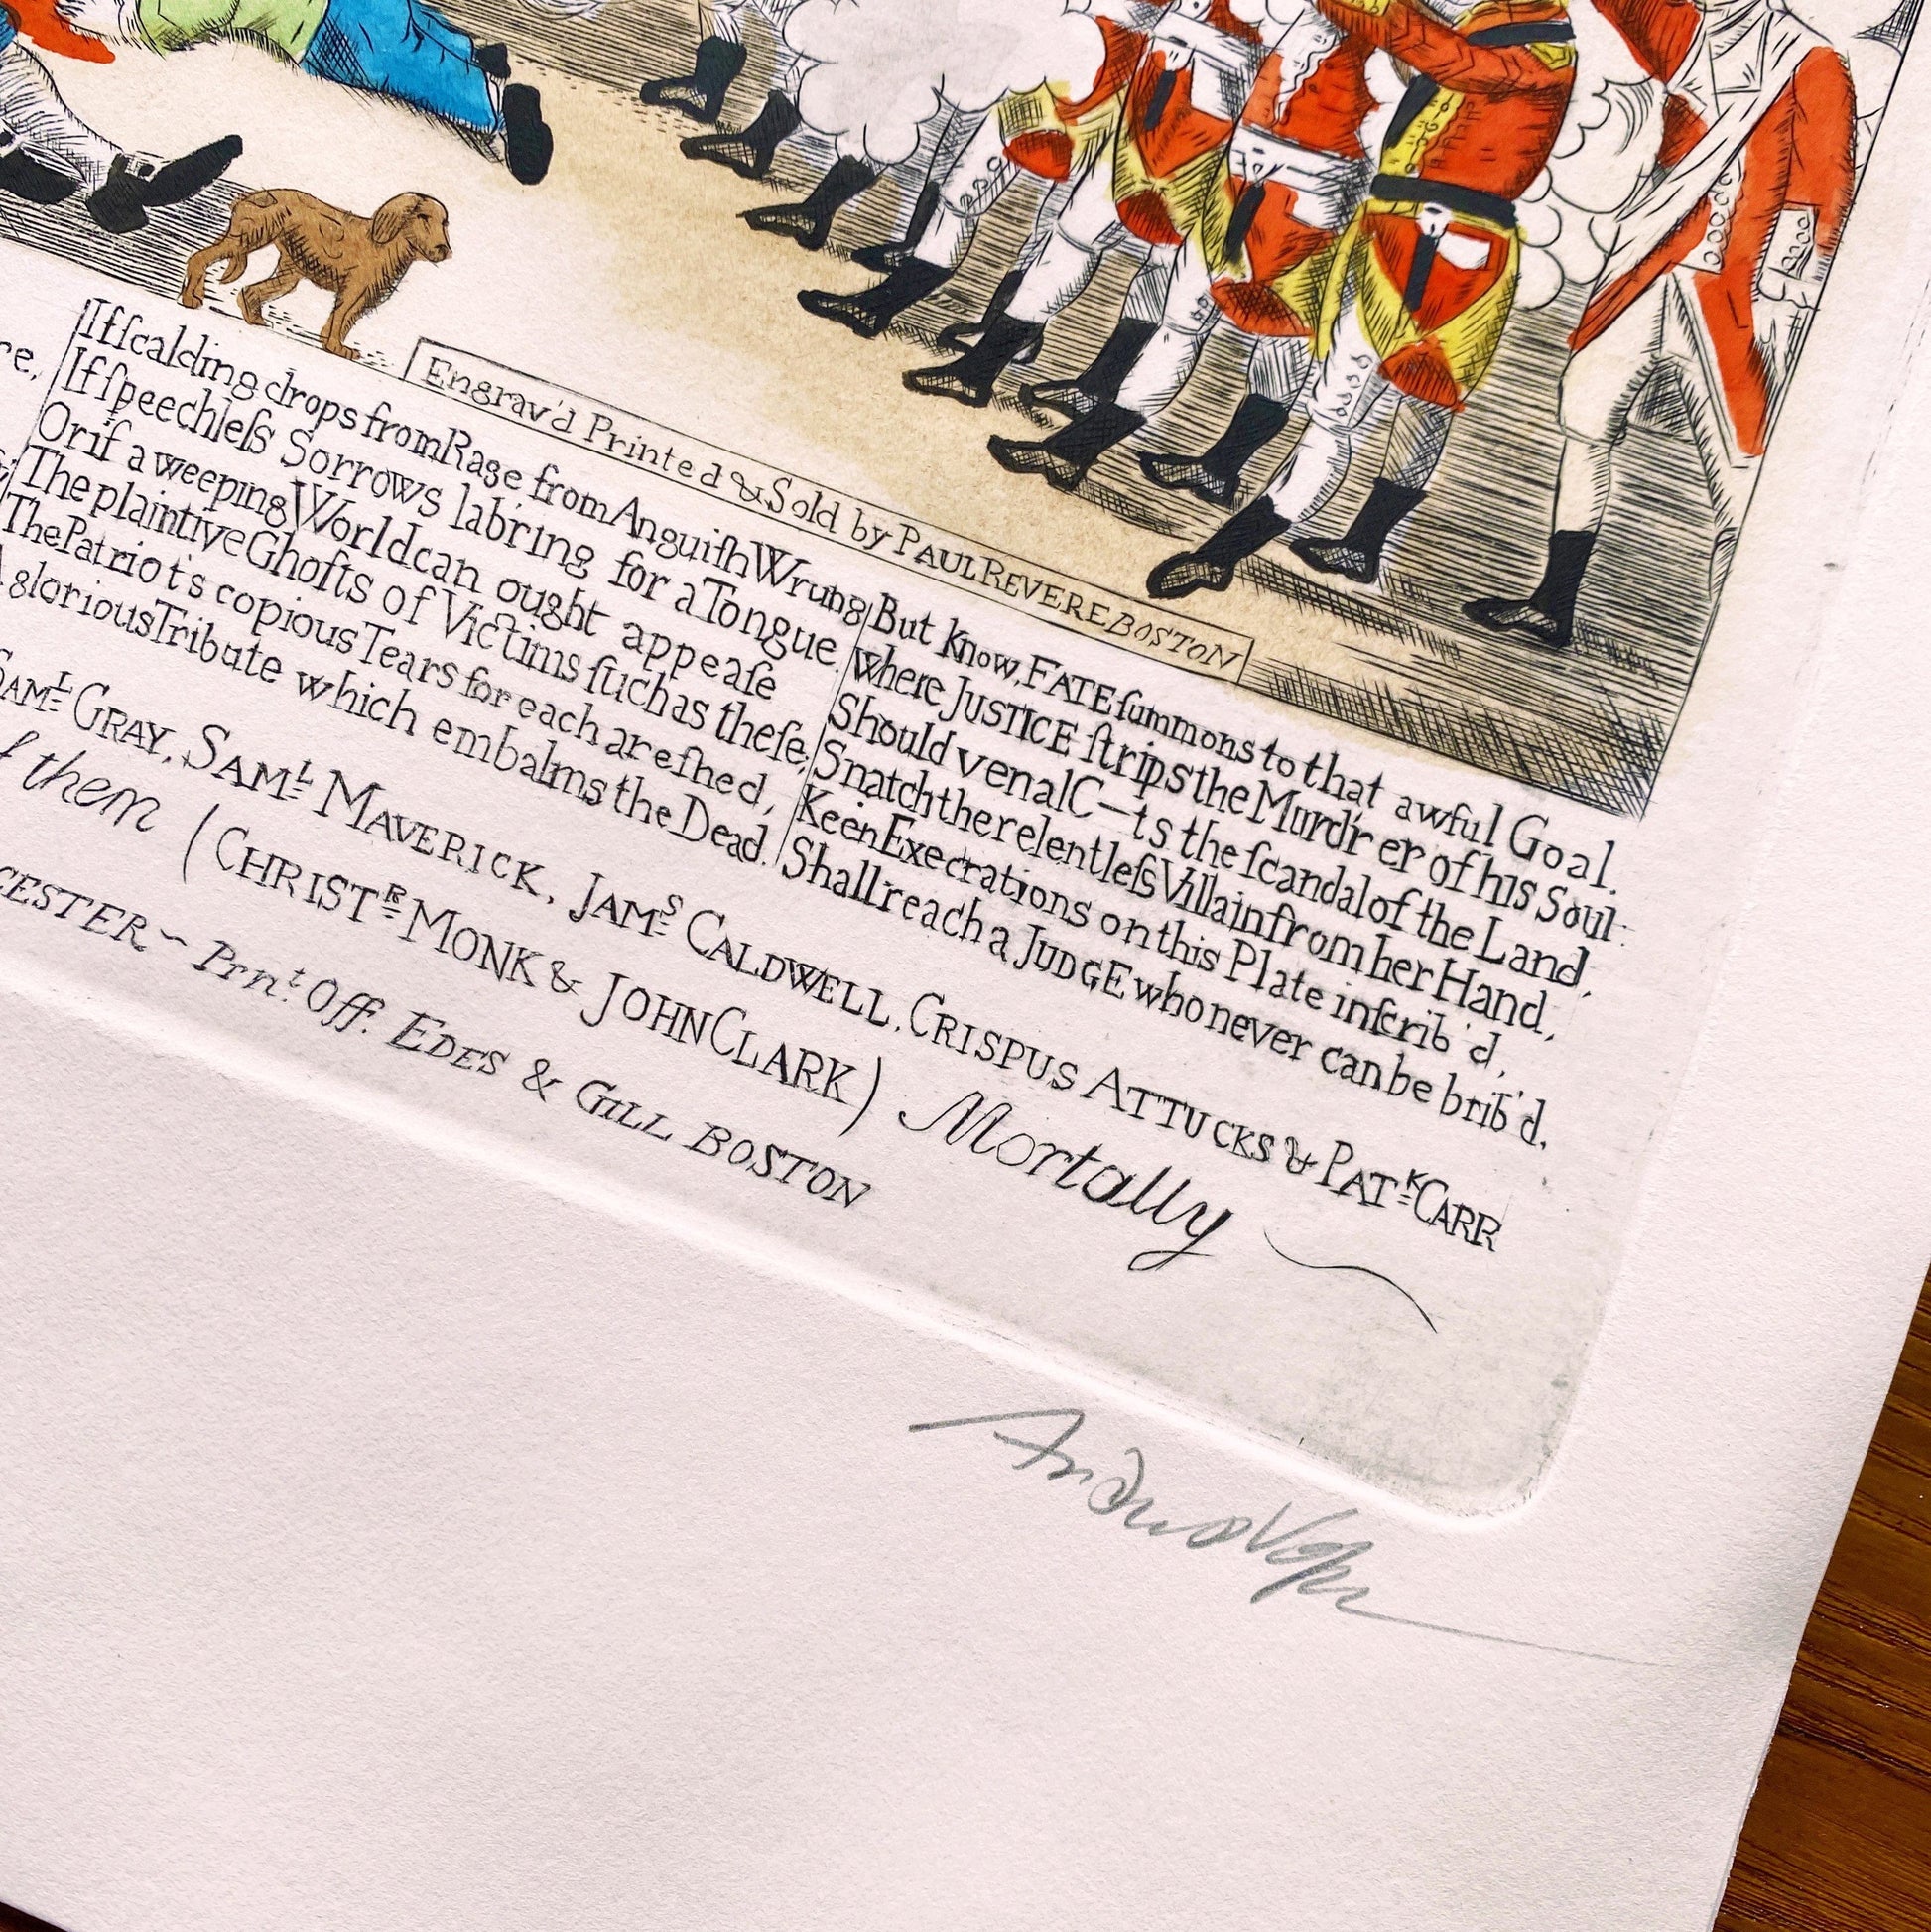 Engrav'd Printed & Sold by PAUL REVERE BOSTON
re,
If ſcalding drops from Rage from Anguiſh Wrung
If ſpeechleſs Sorrows lab'ring for a Tongue.
Or if a weeping World can ought appeaſe
The plaintive Ghoſts of Victims ſuch as theſe,
The Patriot's copious Tears for each are ſhed,
A glorious Tribute which embalms the Dead.
But know, FATE ſummons to that awful Goal.
Where JUSTICE ſtrips the Murd'rer of his Soul:
Should venal C—ts the ſcandal of the Land,
Snatch the relentleſs Villain from her Hand,
Keen Execrations on this Plate inſcrib'd,
Shall reach a JUDGE who never can be brib'd.
SAML GRAY, SAML MAVERICK, JAMS CALDWELL, CRISPUS ATTUCKS & PATK CARR
of them (CHRISTR MONK & JOHN CLARK) Mortally
CESTER ~ Prnt Off. EDES & GILL BOSTON